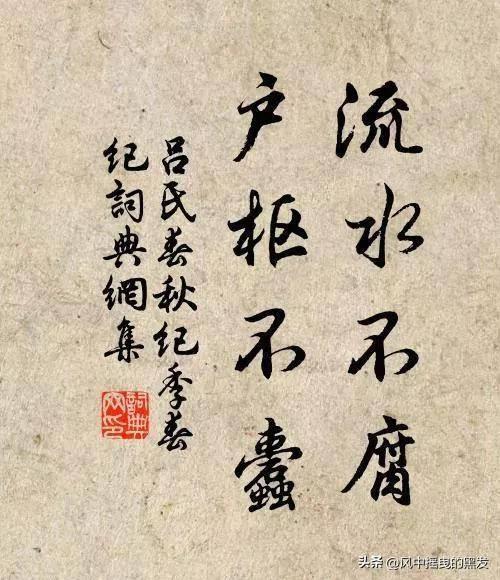 流水不腐
户枢不蠹
吕氏春秋纪季春
纪詞典網集
詞典
网印
头条 @风中摇曳的黑发